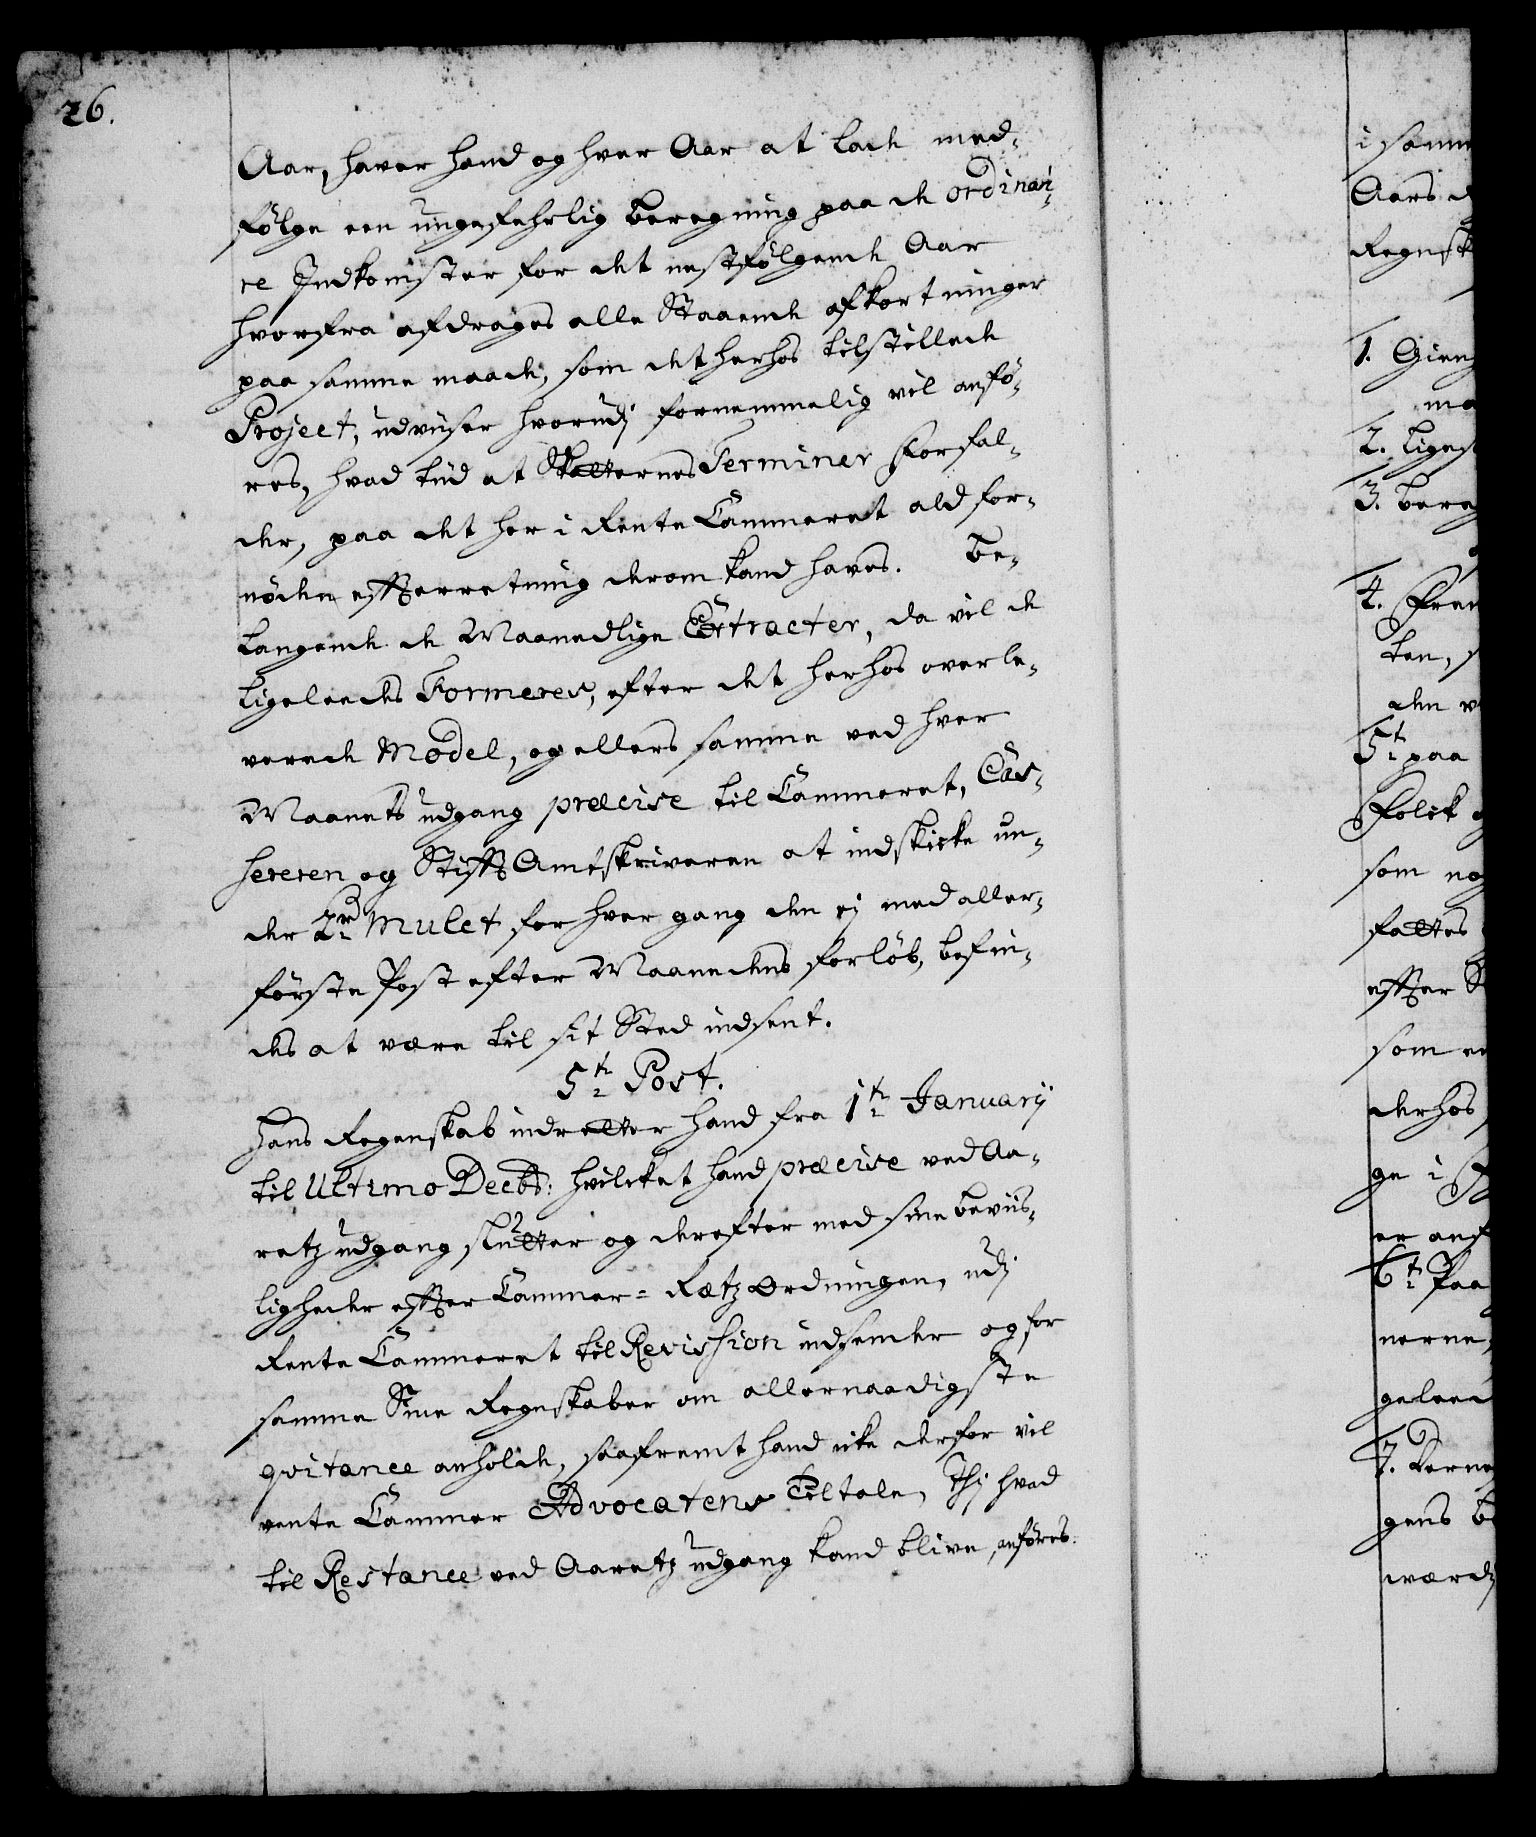 26.
Aar, haver hand og hver Aar at lade med-
følge een ungefehrlig Beregning paa de ordinai-
re Indkomster for det nestfølgende Aar
hvorfra afdrages alle Staaende afkortninger
paa samme maade, som det herhos tilstillede
Project, udviiser hvorudj fornemmelig vil anfø-
res, hvad tiid at Skatternes Terminer Forfal-
der, paa det her i Rente Cammeret ald for-
nøden efterretning derom kand haves. Be-
langende de Maanedlige Extracter, da vil de
ligeleedes Formeres, efter det herhos overle-
verede Model, og ellers samme ved hver
Maanets udgang præcise til Cammeret, Cas-
sereren og StiftsAmtskriveren at indskicke un-
der 2rd Mulct for hver gang den ej med aller-
første Post efter Maanedens forløb, befin-
des at være til sit Sted indsent.
5te Post.
Hans Regenskab indretter hand fra 1te January
til Ultimo Decbr: hvilcket hand præcise ved Aa-
retz udgang slutter og derefter med sine beviis-
ligheder efter Cammer= Rætz Ordningen, udj
Rente Cammeret til Revission indsender og for
samme Sine Regnskaber om allernaadigste
qvitance anholde, saafremt hand icke derfor vil
vente Cammer Advocatens Tiltale, Thj hvad
til Restance ved Aaretz udgang kand blive, anføres
i samm
Aars d
Regnsk
1. Gieng
ma
2. Liges
3. bereg
4. Frem
ten, s
den v
5t paa
Folck o
som no
fattes
efter S
som en
derhos
ge i
er anf
6t Paa
nerne,
geleed
7. Derne
gens be
værdj